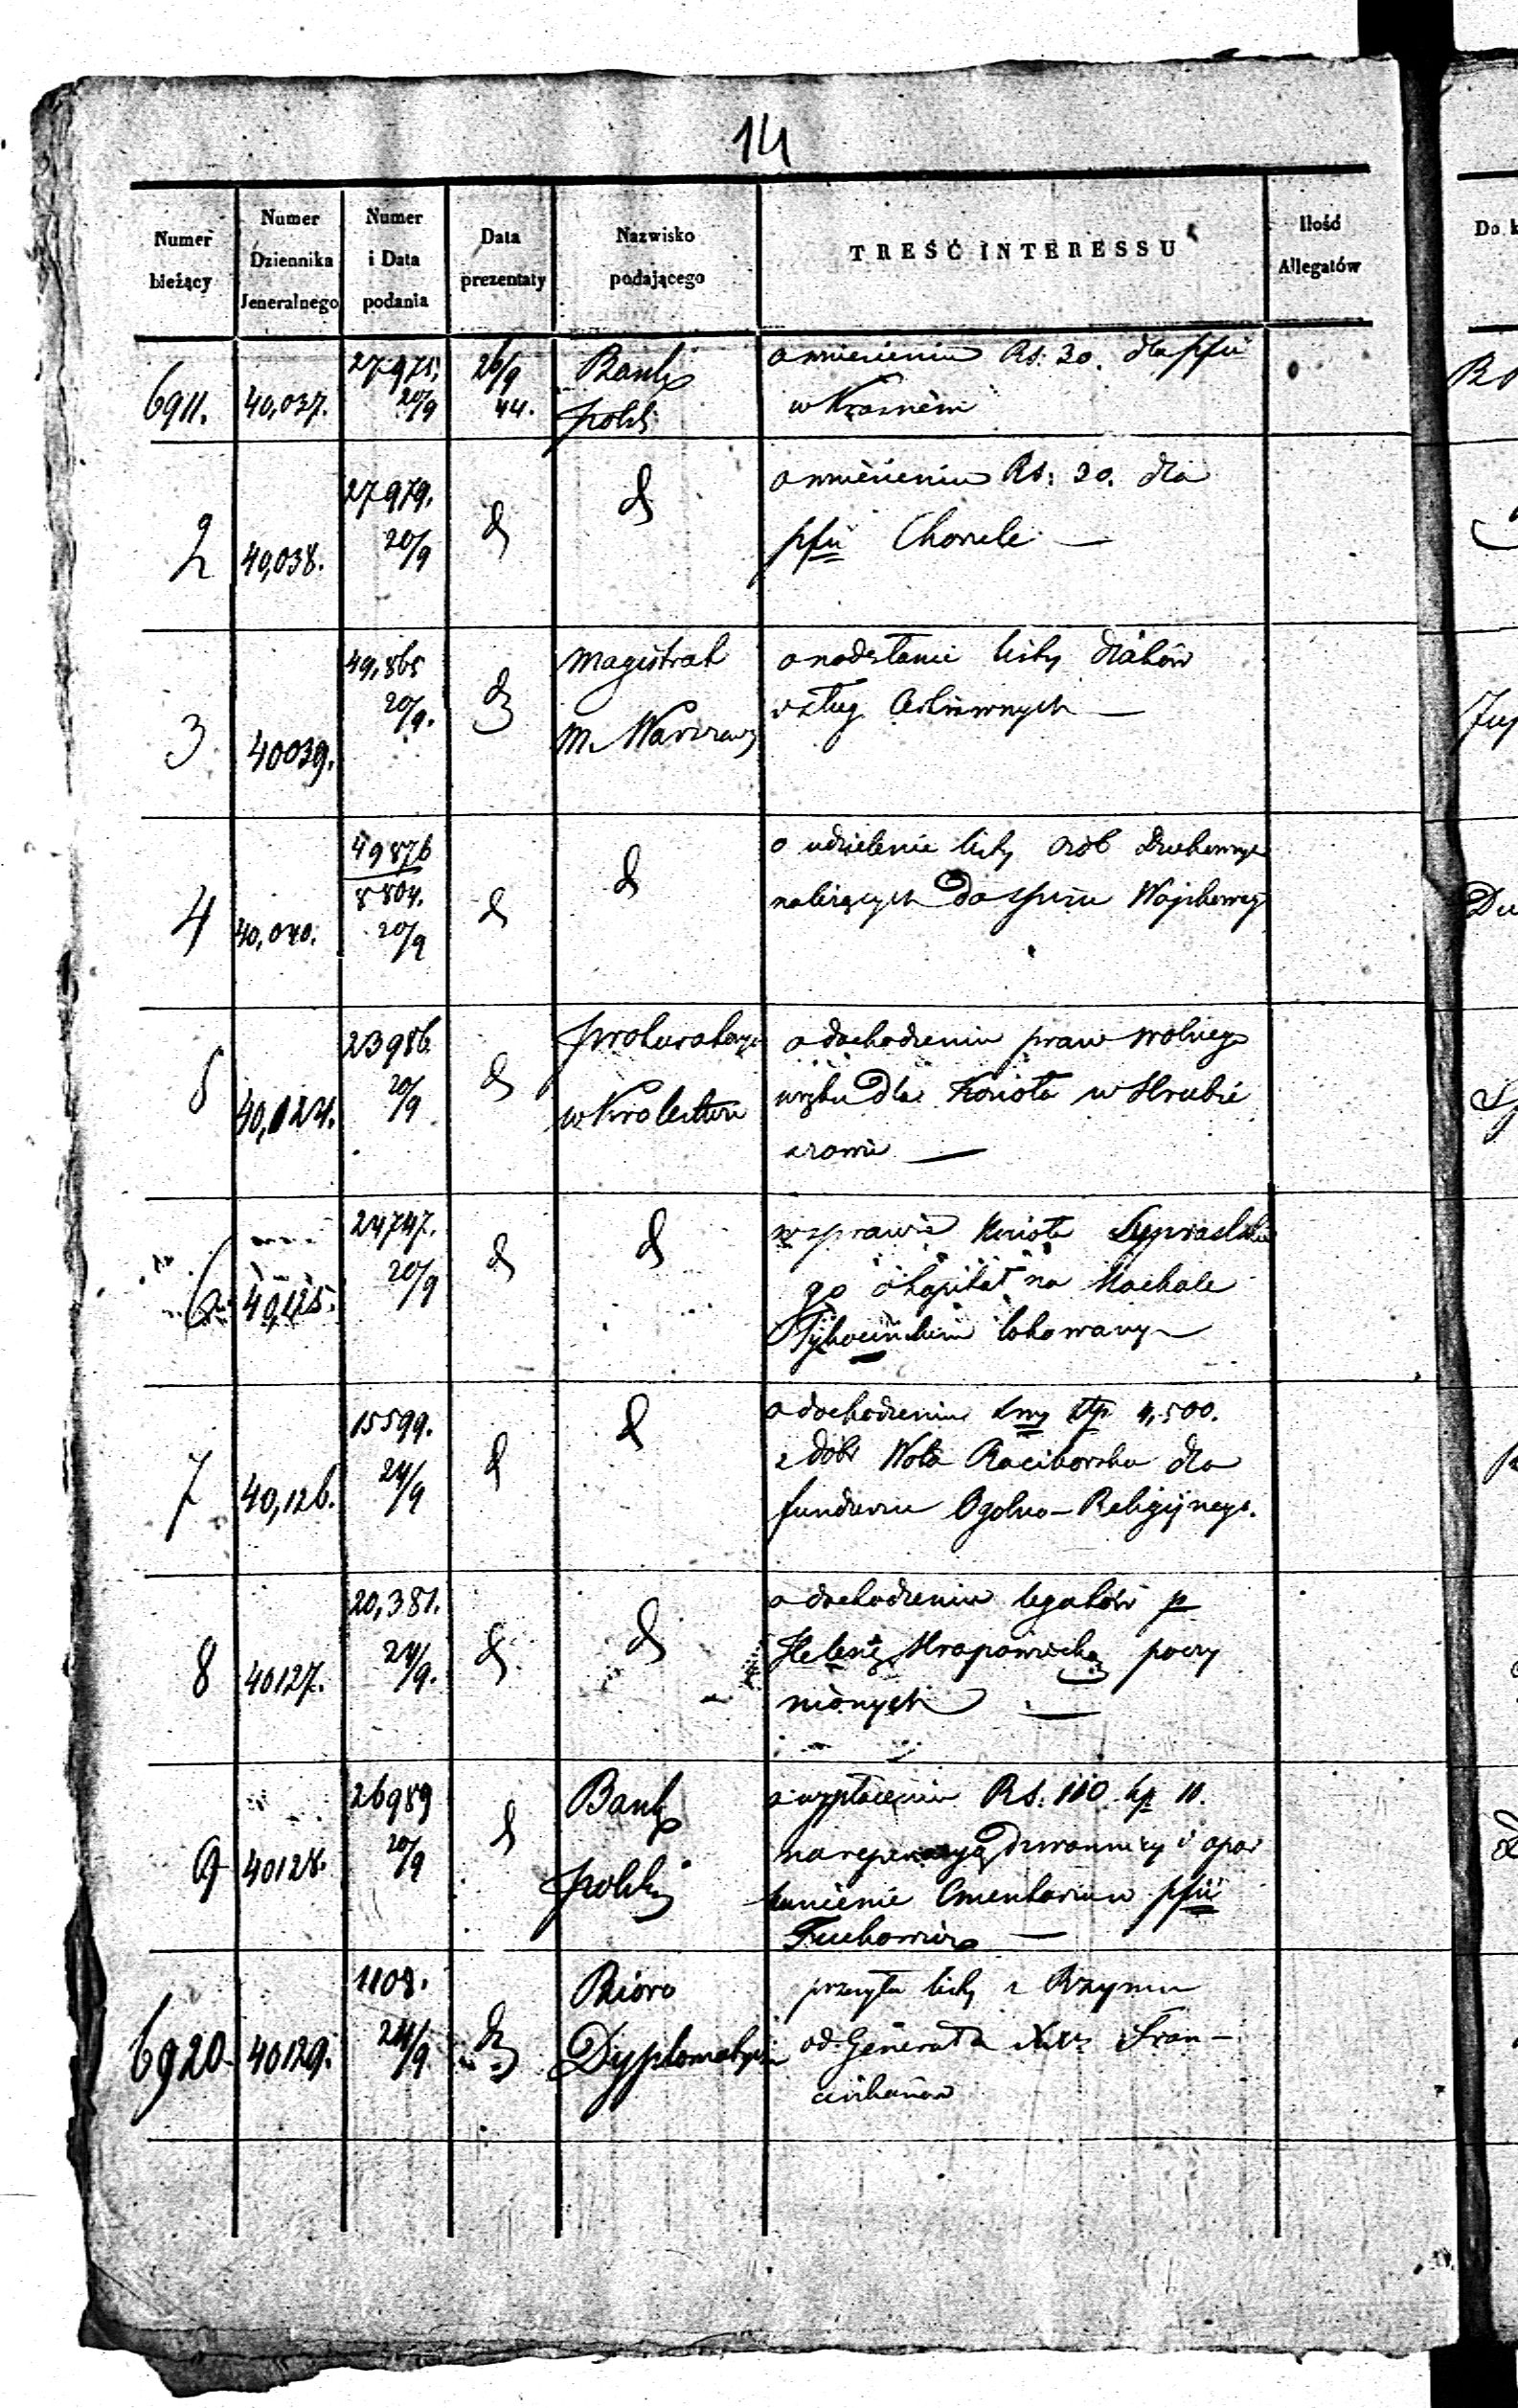 14
Numer bieżący
Numer Dziennika Jeneralnego
Numer i Data podania
Data prezentaty
Nazwisko podającego
TREŚĆ INTERESSU
Ilość Allegatów
6911. 40,037. 27975. 20/9 26/9 44. Bank polski
o wniesieniu Rs. 30. dla pfii
w Krasném
2 40,038. 27979. 20/9 d d
o wniesieniu Rs: 30. dla
pfii Chorzele
3 40039. 49,865 20/9. d Magistrat m. Warszawy
o nadesłanie listy
4 40,040. 49876 8804. 20/9 d d
o udzielenie listy osób Duchownych
należących do spisu Wojskowego
5 40,124. 23986. 20/9 d prokuratorya w Krolestwie
o dochodzeniu praw wolnego
wrębu dla Kościoła w Hrubie
szowie
6 40,125. 24747. 20/9 d d
w sprawie Kościoła Supraślskie
go o kapitał na Kahale
Tykocińskim lokowany
7 40,126. 15599. 24/9 d d
o dochodzeniu Smy Złp 4,500.
z dobr Wola Raciborska dla
funduszu Ogolno-Religijnego.
8 40127. 20,381. 24/9. d d
o dochodzeniu legatów p
Helenę Hrapowicką poczy
nionych
9 40128. 26989 20/9 d Bank polski
o wypłacenie Rs. 110 kp 11.
na reperacyą dzwonnicy i opar
kanienie Cmentarza w pfii
Tuchowicz
6920. 40129. 1108. 24/9 d Bióro Dyplomatycz
przesyła listy z Rzymu
od Generała XXży Fran-
ciszkanów